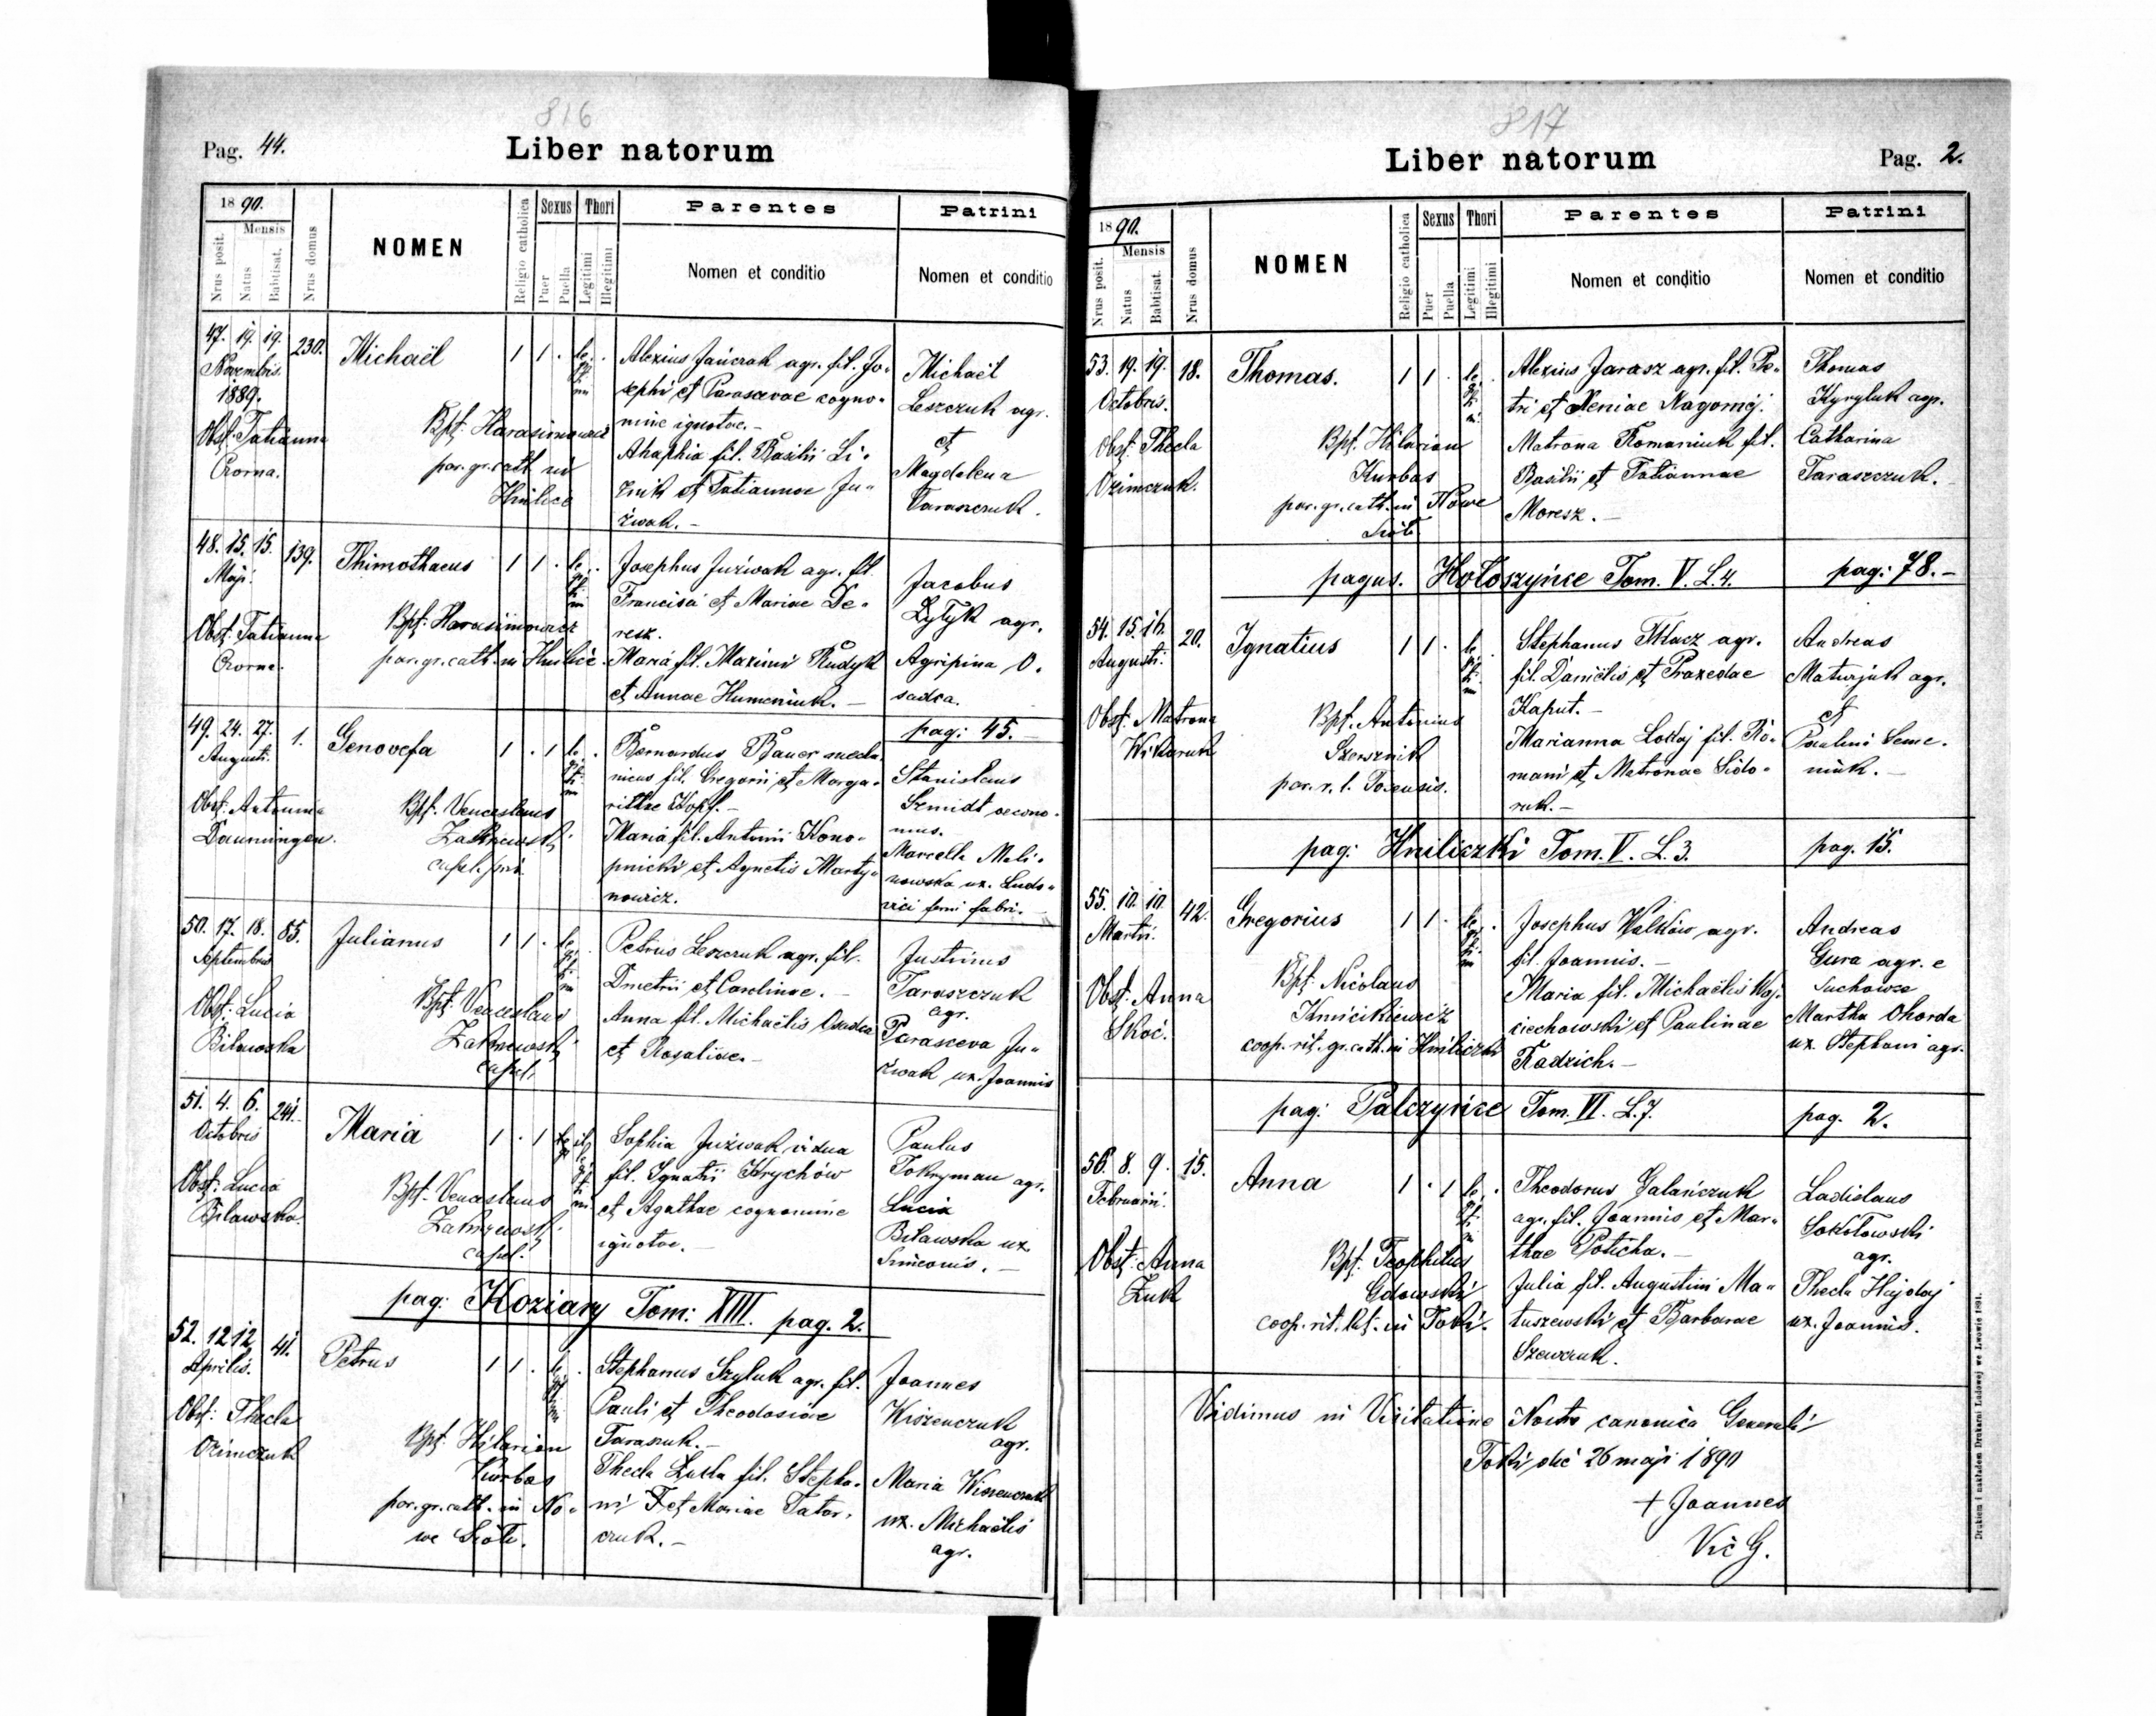 816
Pag. 44.
Liber natorum
1890.
Mensis
Nrus posit.
Natus
Babtisat.
Nrus domus
NOMEN
Religio catholica
Sexus
Puer
Puella
Thori
Legitimi
Illegitimi
Parentes
Nomen et conditio
Patrini
Nomen et conditio
47. 19. 19. 230. Michaël 1 1 . legitimi . Alexius Jańczak agr. fil. Jo- Michaël
Novembris. sephi et Parascevae cogno- Leszczuk agr.
1889. mine ignotae.- et
Obst: Tatianna Bpt: Harasimowicz Ahaphia fil. Basilii Li- Magdalena
Czorna. par. gr. cath. in Hnilice et Tatiannae Ju- Taraszczuk.
źwak.-
48. 15. 15. 139. Thimothaeus 1 1 . legitimi . Josephus Juźwak agr. fil. Jacobus
Maji. Francisci et Mariae De- Łytyk agr.
Obst: Tatianna Bpt: Harasimowicz resz. Agripina O-
Czorna. par. gr. cath. in Hnilice. Maria fil. Maximi Rudyk sadca.
et Annae Humeniuk.-
pag: 45.-
49. 24. 27. 1. Genovefa 1 . 1 legitimi . Bernardus Bauer mecha- Stanislaus
Augusti. nicus fil. Gregorii et Marga- Szmidt oecono-
Obst: Antonina Bpt: Venceslaus rithae Kopf.- mus.
Daumingen. Zakrzewski Maria fil. Antonii Kono- Marcella Mali-
capel. pnicki et Agnetis Marty- nowska ux. Ludo-
nowicz. vici ferri fabri.-
50. 17. 18. 85. Julianus 1 1 . legitimi Petrus Leszczuk agr. fil. Justinus
Septembris Dmetrii et Carolinae.- Taraszczuk
Obst: Lucia Bpt: Venceslaus Anna fil. Michaëlis Osadca agr.
Bilawska Zakrzewski et Rosaliae.- Parasceva Ju-
capel. źwak ux. Joannis
51. 4. 6. 241. Maria 1 . 1 illegitimi Sophia Juźwak vidua Paulus
Octobris fil. Ignatii Hrychów Tokryman agr.
Obst: Lucia Bpt: Venceslaus et Agathae cognomine Lucia
Bilawska. Zakrzewski ignotae.- Bilawska ux.
capel. Simeonis.-
pag: Koziary Tom: XIII. pag. 2.
52. 12 12 41. Petrus 1 1 . legitimi . Stephanus Szyluk agr. fil. Joannes
Aprilis. Pauli et Theodosiae Wiszenczuk
Obst: Thecla Bpt: Hilarion Taraszuk.- agr.
Ozimczuk Kurbas Thecla fil. Stepha- Maria Wiszenczuk
par. gr. cath. in No- ni et Mariae Tatar- ux. Michaëlis
we Sioło. czuk.- agr.
817
Liber natorum
Pag. 2.
1890.
Mensis
Nrus posit.
Natus
Babtisat.
Nrus domus
NOMEN
Religio catholica
Sexus
Puer
Puella
Thori
Legitimi
Illegitimi
Parentes
Nomen et conditio
Patrini
Nomen et conditio
53. 19. 19. 18. Thomas. 1 1 . legitimi . Alexius Jarasz agr. fil. Pe- Thomas
Octobris. tri et Xeniae Nagornej. Kyryluk agr.
Obst: Thecla Bpt: Hilarion Matrona Romaniuk fil. Catharina
Ozimczuk. Kurbas Basilii et Tatiannae Taraszczuk.
par. gr. cath. in Nowe Moresz.-
Sioło
pagus. Hołoszyńce Tom. V. L. 4. pag: 78.-
54. 15. 16. 20. Ignatius 1 1 . legitimi . Stephanus Tkacz agr. Andreas
Augusti. fil. Daniëlis et Praxedae Maturjuk agr.
Obst: Matrona Bpt: Antonius Kaput.- et
Wiktoruk Szersznik Marianna Lokaj fil. Ro- Paulini Seme-
par. r. l. Tokensis. mani et Matronae Sido- niuk.-
ruk.-
pag: Hniliczki Tom. V. L. 3. pag. 15.
55. 10. 10. 42. Gregorius 1 1 . legitimi . Josephus Walków agr. Andreas
Martii. fil. Joannis.- Gura agr. e
Obst: Anna Bpt: Nicolaus Maria fil. Michaëlis Woj- Suchowce
Skoć. Kmicikiewicz ciechowski et Paulinae Martha Chorda
coop. rit. gr. cath. in Hniliczki Radzich.- ux. Stephani agr.
pag: Palczyńce Tom. VI. L. 7. pag. 2.
56. 8. 9. 15. Anna 1 . 1 legitimi . Theodorus Galańczuk Ladislaus
Februarii. agr. fil. Joannis et Mar- Sokołowski
Obst: Anna Bpt: Teophilus thae Poticha.- agr.
Żuk Gdowski Julia fil. Augustini Ma- Thecla Hajdaj
coop. rit. lat. in Toki. tuszewski et Barbarae ux. Joannis.
Szewczuk.
Vidimus in Visitatione Nostra canonica Generali
Toki die 26 maji 1890
+ Joannes
Vic G.
Drukiem i nakładem Drukarni Ludowej we Lwowie 1891.